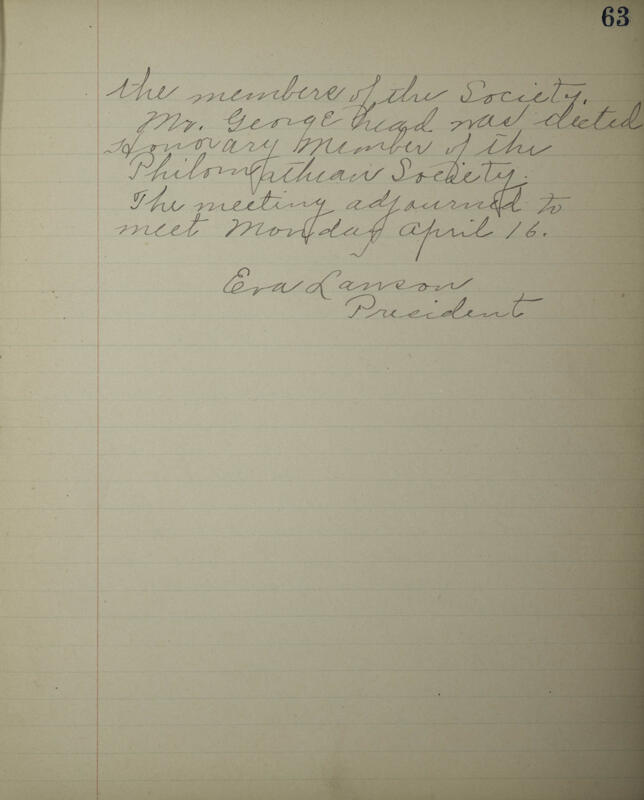 63
the members of the Society.
Mr. George head was elected
Honorary Member of the
Philomathean Society.
The meeting adjourned to
meet Monday april 16.
Eva Lawson
President